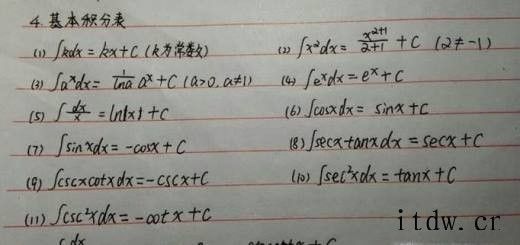 4. 基本积分表
(1) ∫kdx = kx + C (k为常数) (2) ∫x²dx = x²⁺¹/2+1 + C (2≠-1)
(3) ∫aˣdx = 1/lna aˣ + C (a>0, a≠1) (4) ∫eˣdx = eˣ + C
(5) ∫dx/x = ln|x| + C (6) ∫cosxdx = sinx + C
(7) ∫sinxdx = -cosx + C (8) ∫secxtanxdx = secx + C
(9) ∫cscxcotxdx = -cscx + C (10) ∫sec²xdx = tanx + C
(11) ∫csc²xdx = -cotx + C
itdw.cn